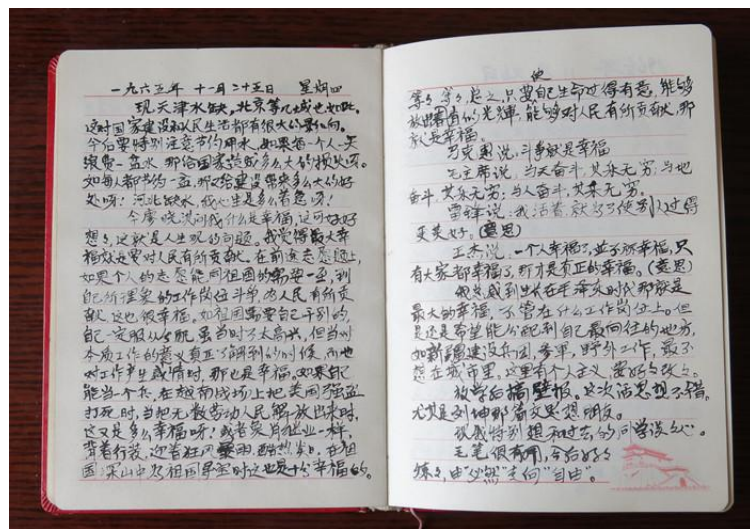 一九六五年 十一月二十五日 星期四
现天津水缺,北京等几城也如此,
这对国家建设和人民生活都有很大的影响。
今后要特别注意节约用水,如果每一个人一天
浪费一盆水,那给国家造成多么大的损失啊。
如每人都节约一盆,那又给建设带来多么大的好
处呀!河北缺水,我心里是多么着急呀!
今李晓洪问我什么是幸福,这可好好
想想,这就是人生观的问题。我觉得最大幸
福就是要对人民有所贡献。在前途志愿上,
如果个人的志愿能同祖国的需要一致,到
自己所理想的工作岗位斗争,为人民有所贡
献,这也很幸福,如祖国需要自己干别的,
自己一定服从分配,虽当时不太高兴,但当对
本质工作的意义真正了解到的时候,而也
对工作产生感情时,那也是幸福。如果自己
能当个兵,在越南战场上把美国强盗
打死时,当把无数劳动人民解放出来时,
这又是多么幸福呀!或者象月 一样
背着行装,迎着狂风暴雨,酷热炎日,在祖
国深山中为祖国寻宝时这也是十分幸福的。
他
等等等等,总之,只要自己生命过得有意,能够
放出看有的光辉,能够对人民有所贡献,那
就是幸福。
马克思说,斗争就是幸福
毛主席说,与天奋斗,其乐无穷;与地
奋斗,其乐无穷;与人奋斗,其乐无穷。
雷锋说:我活着,就是为了使别人过得
更美好。(意思)
王杰说,一个人幸福了,并不称幸福,只
有大家都幸福了,那才是真正的幸福。(意思)
我总感到生长在毛泽东时代那就是
最大的幸福,不管在什么工作岗位上。但
是还是希望能分配到自己最向往的地方,
如新疆建设兵团,参军,野外工作,最不
想在城市里。这里有个人主义,要好好改之。
放学后搞壁报。这次活思想不错。
尤其是刘坤那篇文思想明反。
现我特别想和过去的同学谈谈心。
毛笔很有用,今后好好
练练,由“必然”走向“自由”。